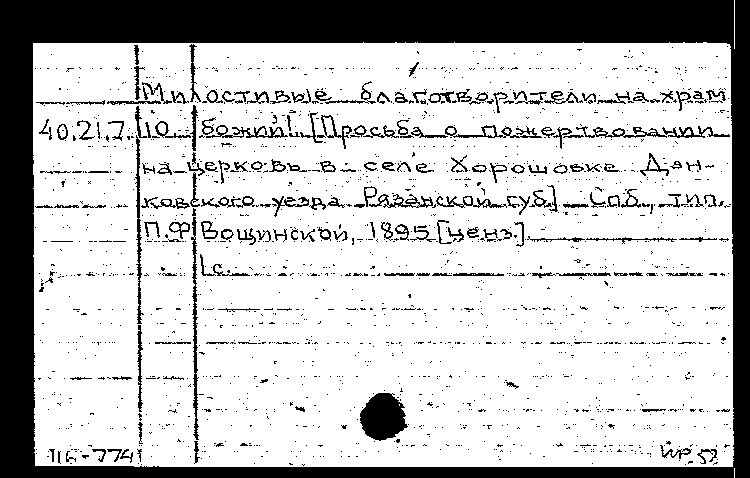 Милостивые благотворители на храм
40.21.7.10 божий!. [Просьба о пожертвовании
на церковь в селе Хорошовке Дан-
ковского уезда Рязанской губ]. Спб, тип.
П.Ф Вощинской, 1895 [ценз.].
1с.